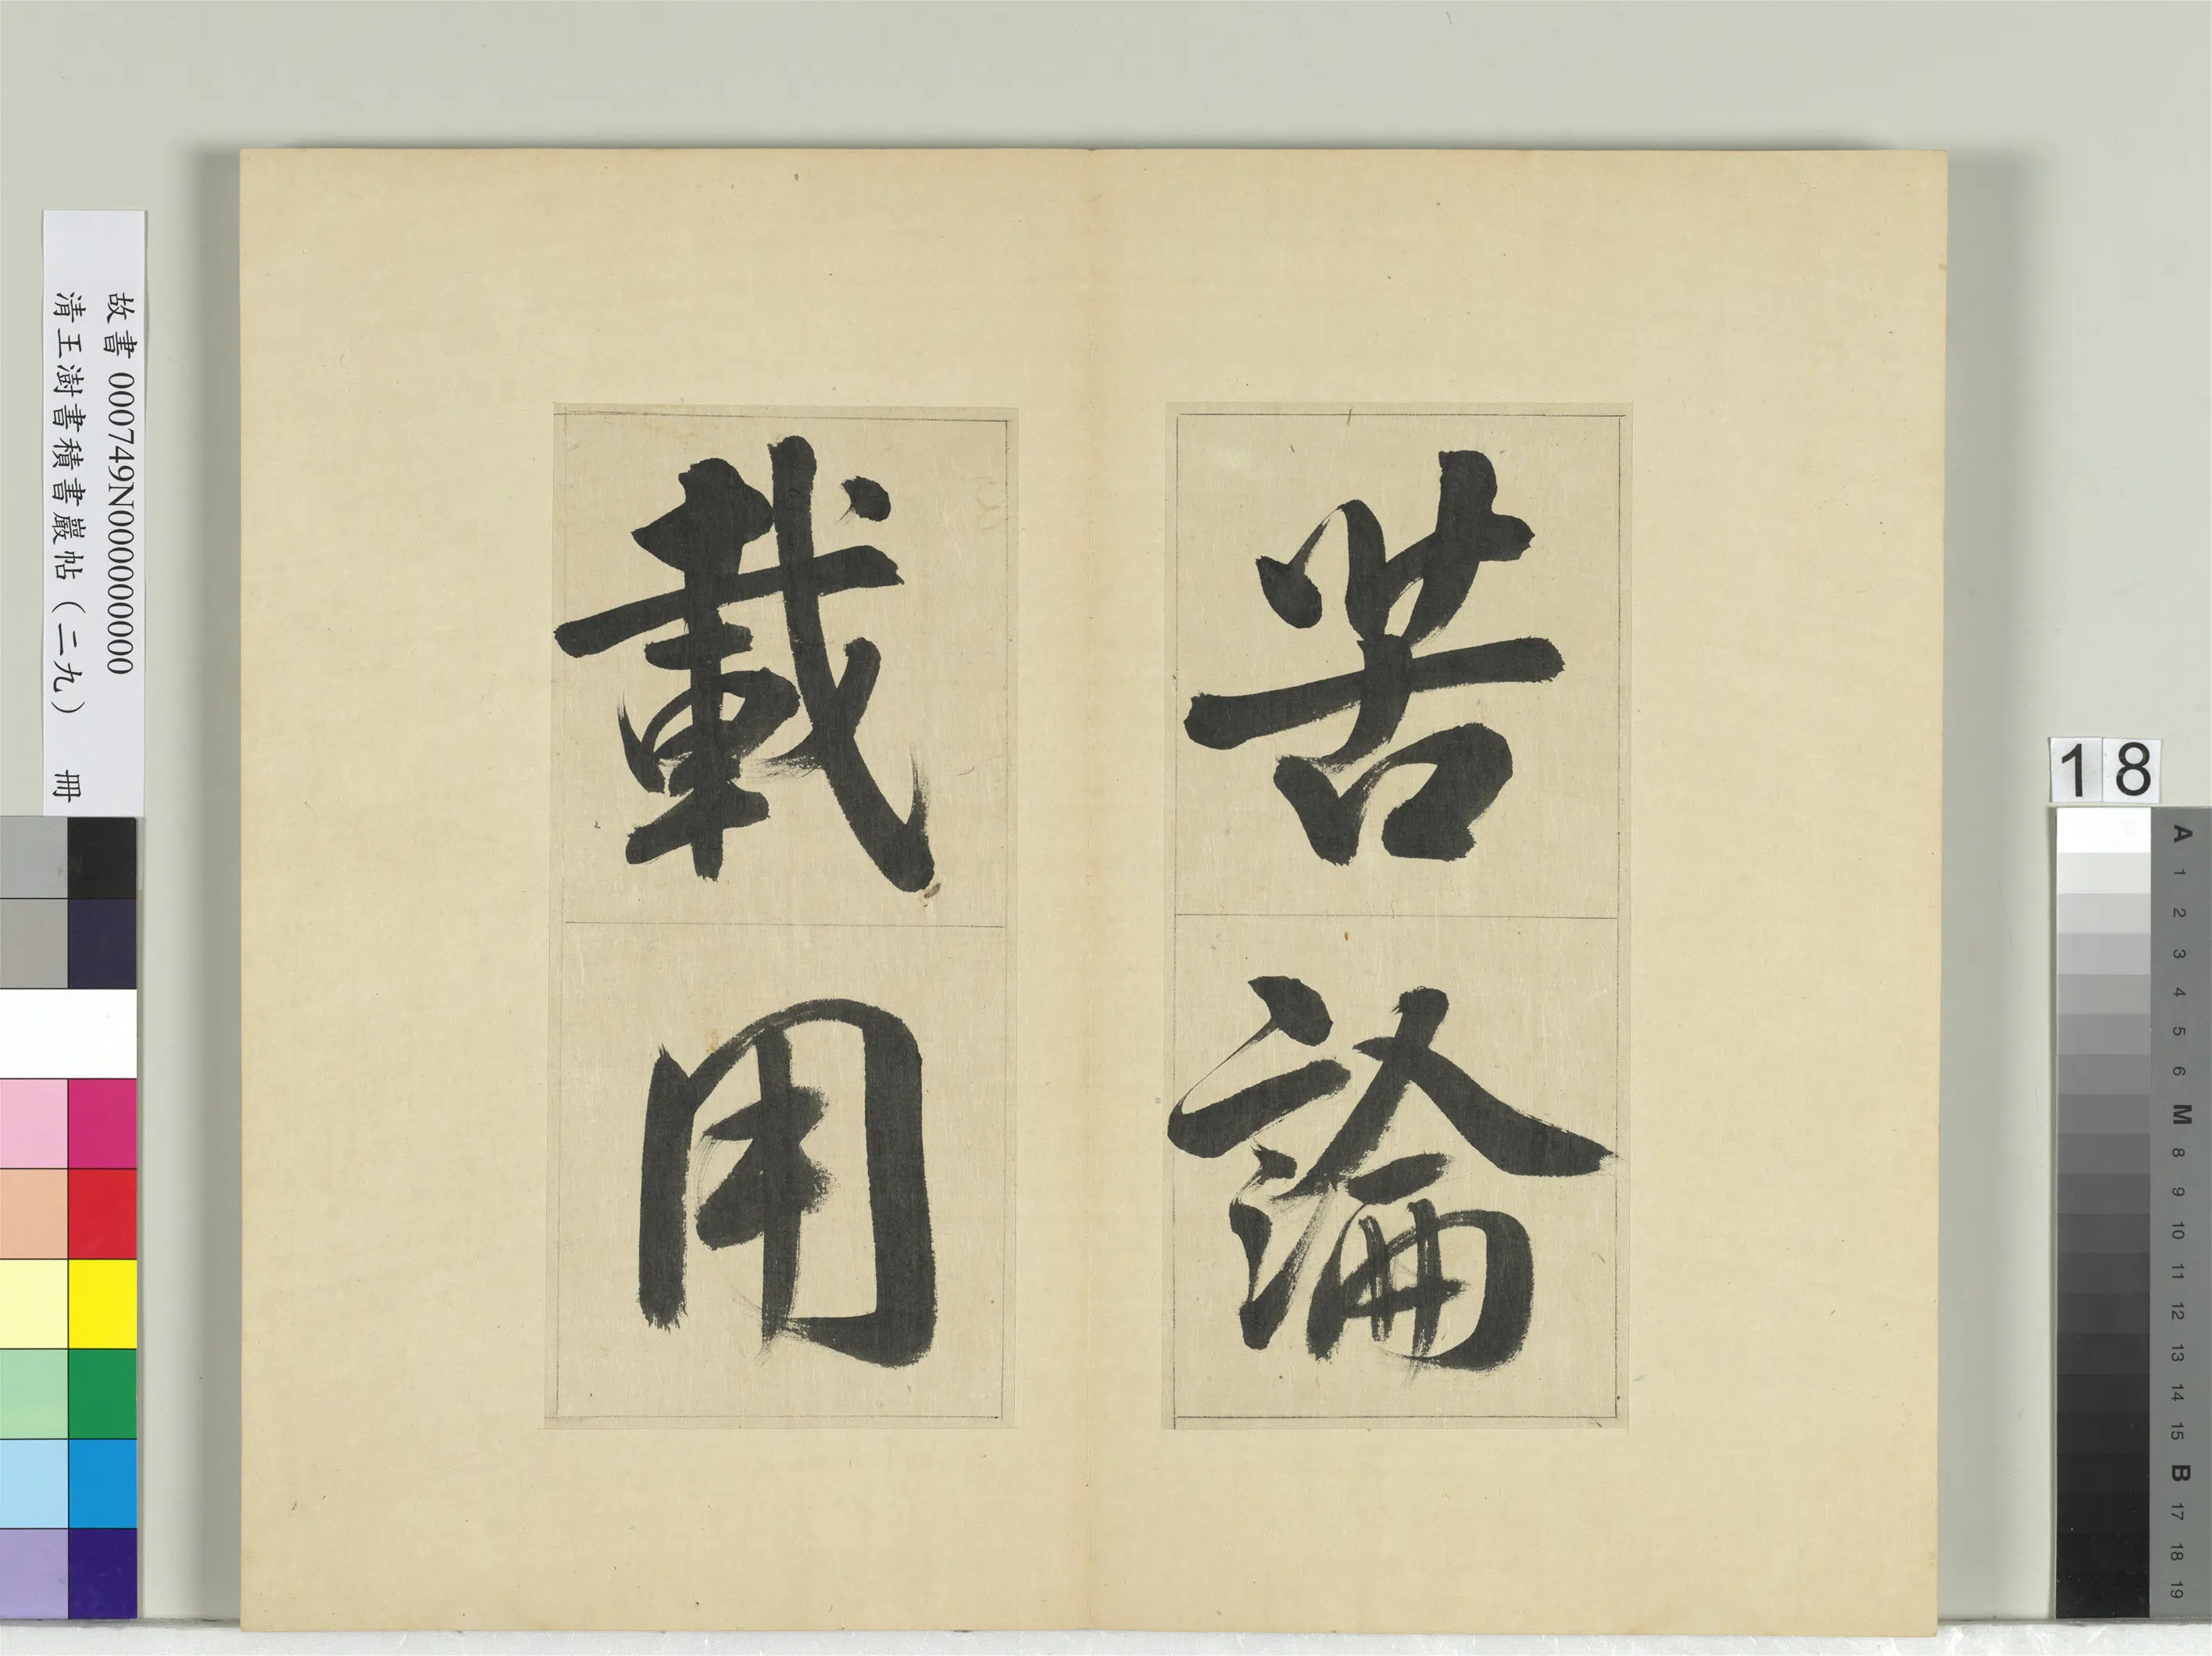 苦論
載用
故書 000749N000000000
清王澍書積書巖帖（二九） 冊
18
A
1
2
3
4
5
6
M
8
9
10
11
12
13
14
15
B
17
18
19